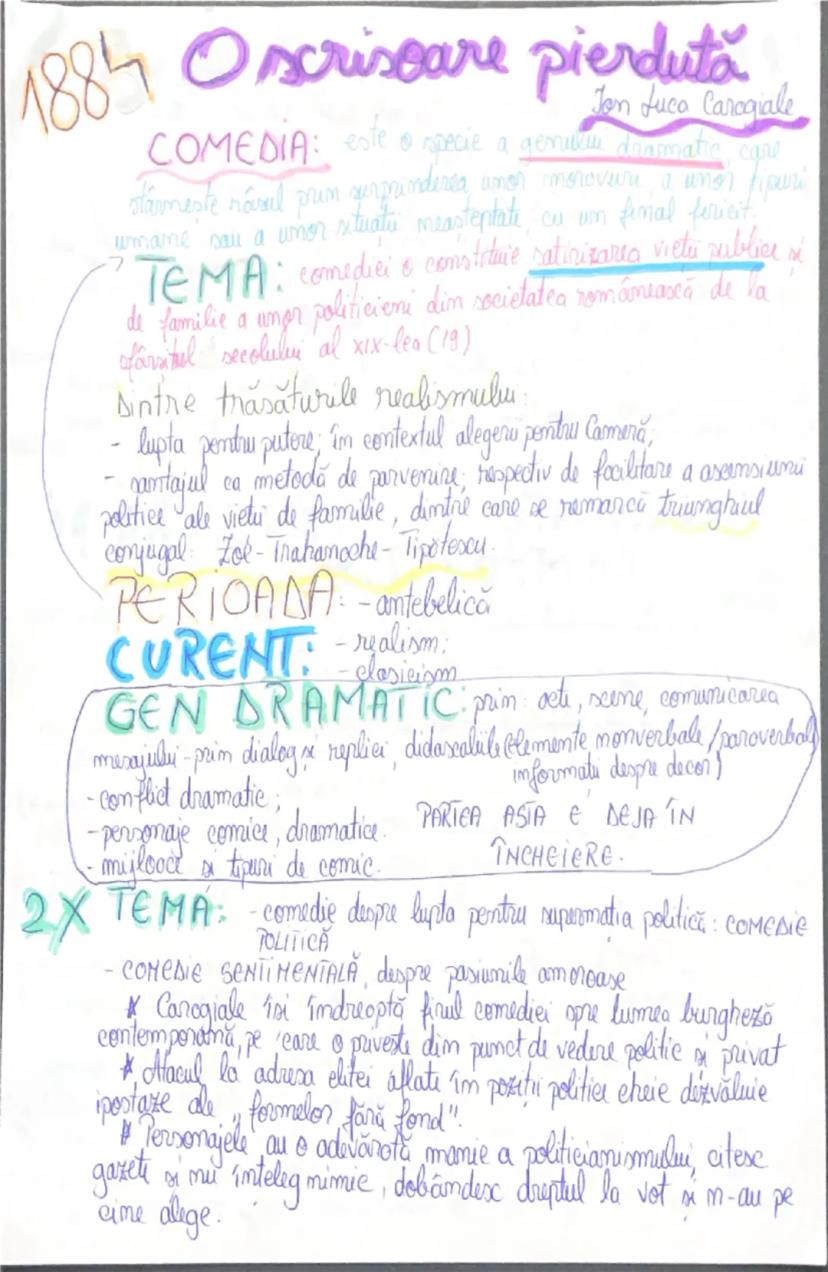 1884 O scrisoare pierdută
Ion Luca Caragiale
COMEDIA: este o specie a genului dramatic, care
stârnește râsul prin surprinderea unor moravuri, a unor tipuri
umane sau a unor situații neașteptate, cu un final fericit.
TEMA: comediei o constituie satirizarea vieții publice și
de familie a unor politicieni din societatea românească de la
sfârșitul secolului al XIX-lea (19)
Dintre trăsăturile realismului:
- lupta pentru putere; în contextul alegerii pentru Cameră;
- șantajul ca metodă de parvenire; respectiv de facilitare a ascensiunii
politice ale vieții de familie, dintre care se remarcă triunghiul
conjugal: Zoe-Trahanache-Tipătescu.
PERIOADA: - antebelică
CURENT: - realism;
- clasicism
GEN DRAMATIC: prin: acte, scene, comunicarea
mesajului-prin dialog și replici, didascaliile (elemente nonverbale/paraverbale)
informații despre decor)
- conflict dramatic;
- personaje comice, dramatice. PARTEA ASTA E DEJA ÎN
- mijloace și tipuri de comic. ÎNCHEIERE.
2X TEMĂ: - comedie despre lupta pentru supermația politică: COMEDIE
POLITICĂ
- COMEDIE SENTIMENTALĂ, despre pasiunile amoroase
* Caragiale își îndreaptă firul comediei spre lumea burgheză
contemporană, pe care o privește din punct de vedere politic și privat
* Atacul la adresa elitei aflate în poziții politice cheie dezvăluie
ipostaze ale „formelor fără fond".
* Personajele au o adevărată manie a politicianismului, citesc
gazete și nu înțeleg nimic, dobândesc dreptul la vot și n-au pe
cine alege.